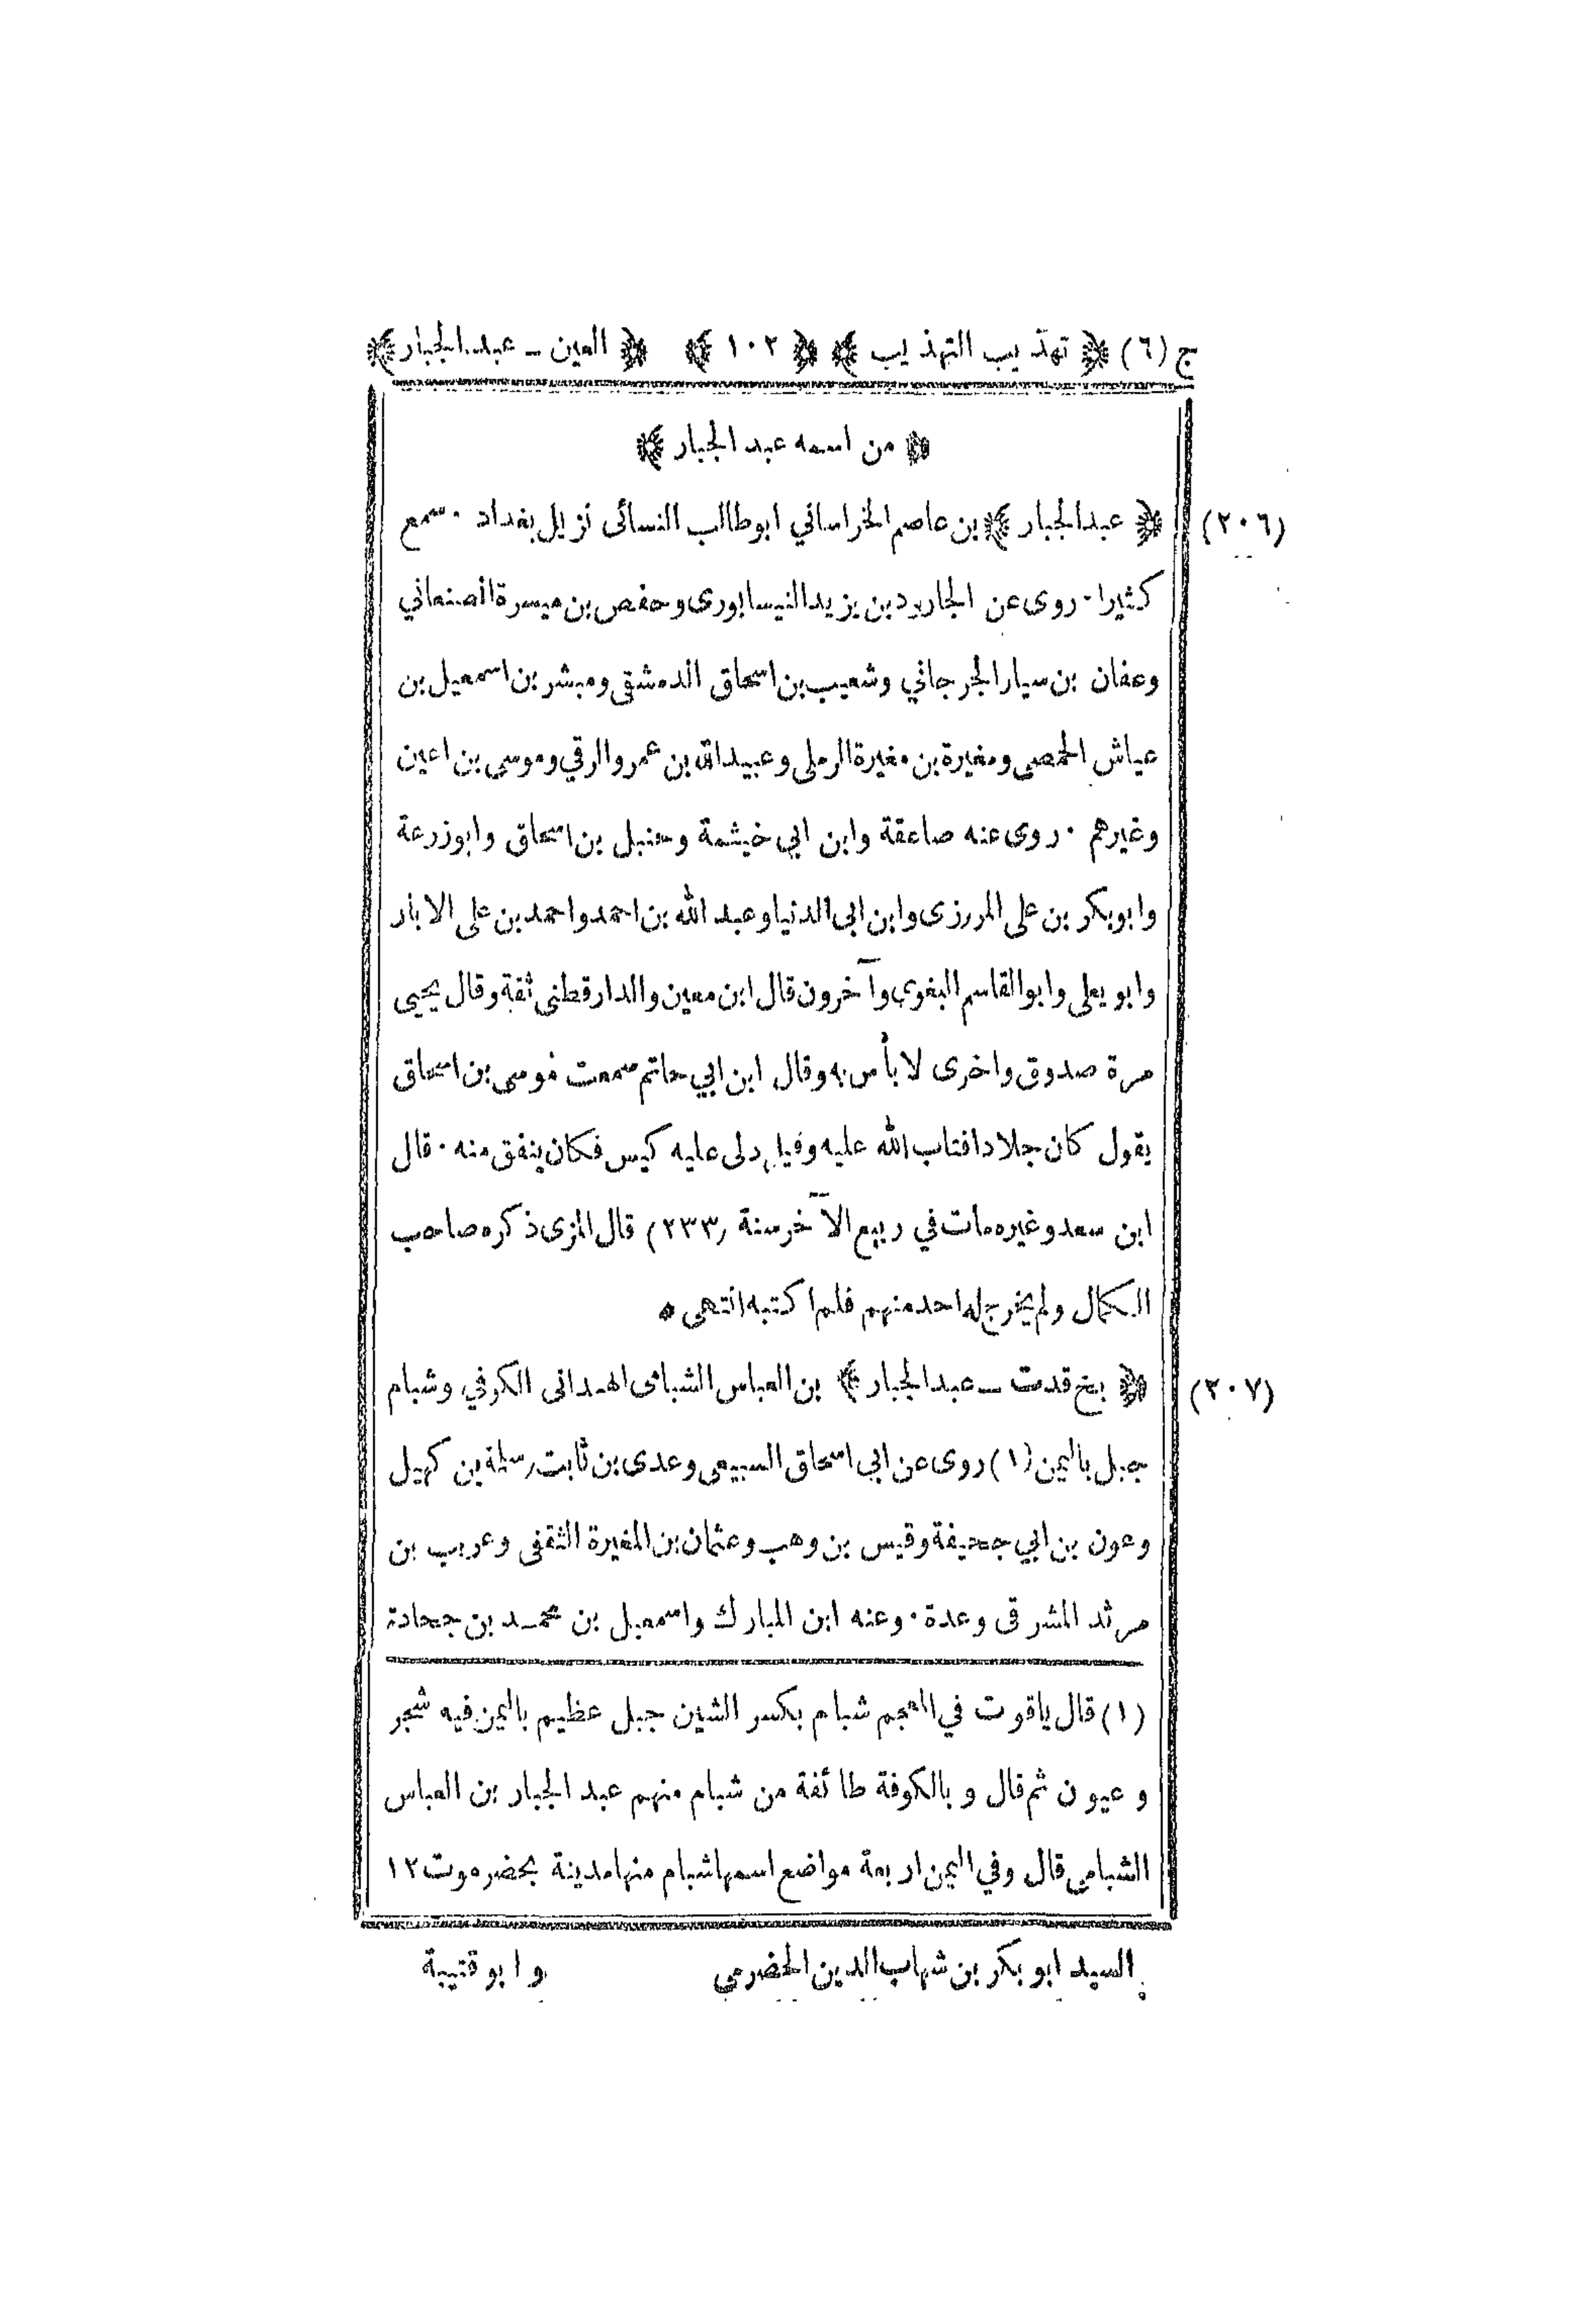 ج (٦) ﴿ تهذيب التهذيب ﴾ ﴿ ١٠٢ ﴾ ﴿ العين - عبد الجبار ﴾
﴿ من اسمه عبد الجبار ﴾
(٢٠٦) ﴿ عبد الجبار ﴾ بن عاصم الخراساني ابو طالب النسائى نزيل بغداد ٠ سمع
كثيرا ٠ روى عن الجارود بن يزيد النيسابورى وحفص بن ميسرة الصنعاني
وعفان بن سيار الجرجاني وشعيب بن اسحاق الدمشقى ومبشر بن اسمعيل بن
عياش الحمصى ومغيرة بن مغيرة الرملى وعبيد الله بن عمرو الرقي وموسى بن اعين
وغيرهم ٠ روى عنه صاعقة وابن ابي خيثمة وحنبل بن اسحاق وابو زرعة
وابو بكر بن على المروزى وابن ابى الدنيا وعبد الله بن احمد واحمد بن على الابار
وابو يعلى وابو القاسم البغوي وآخرون قال ابن معين والدارقطنى ثقة وقال يحيى
مرة صدوق واخرى لا بأس به وقال ابن ابي حاتم سمعت موسى بن اسحاق
يقول كان جلادا فتاب الله عليه وقيل دلى عليه كيس فكان ينفق منه ٠ قال
ابن سعد وغيره مات في ربيع الآخر سنة (٢٣٣) قال المزى ذكره صاحب
الكمال ولم يخرج له احد منهم فلم اكتبه انتهى ه
(٢٠٧) ﴿ بخ قدت - عبد الجبار ﴾ بن العباس الشبامى الهمدانى الكوفي وشبام
جبل باليمن (١) روى عن ابي اسحاق السبيعى وعدى بن ثابت وسلمة بن كهيل
وعون بن ابي جحيفة وقيس بن وهب وعثمان بن المغيرة الثقفى وعريب بن
مرثد المشرقى وعدة ٠ وعنه ابن المبارك واسمعيل بن محمد بن جحادة
(١) قال ياقوت في المعجم شبام بكسر الشين جبل عظيم باليمن فيه شجر
وعيون ثم قال و بالكوفة طائفة من شبام منهم عبد الجبار بن العباس
الشبامى قال وفي اليمن اربعة مواضع اسمها شبام منها مدينة بحضرموت ١٢
السيد ابو بكر بن شهاب الدين الحضرمي وابو قتيبة